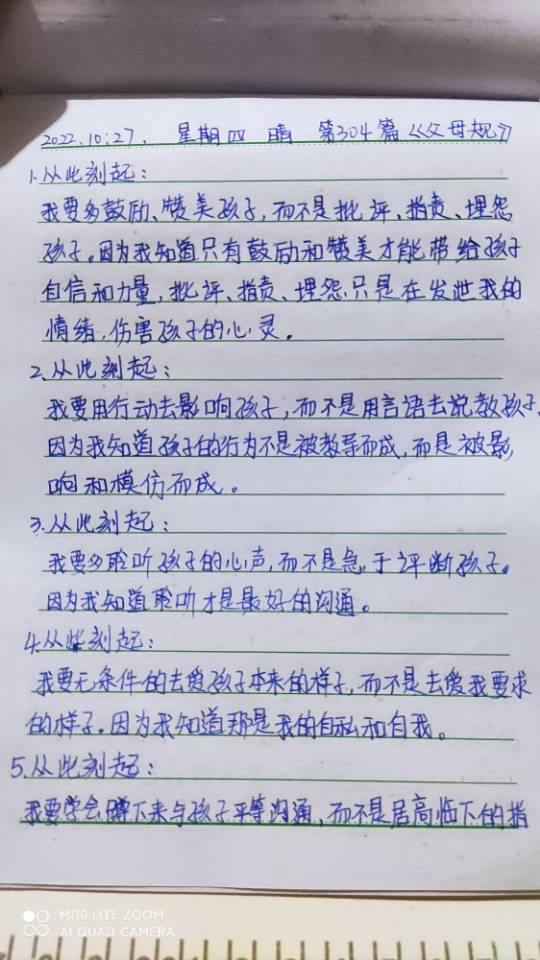 2022.10.27. 星期四 晴 第304篇《父母规》
1.从此刻起:
我要多鼓励、赞美孩子,而不是批评、指责、埋怨
孩子。因为我知道只有鼓励和赞美才能带给孩子
自信和力量,批评、指责、埋怨只是在发泄我的
情绪,伤害孩子的心灵。
2.从此刻起:
我要用行动去影响孩子,而不是用言语去说教孩子,
因为我知道孩子的行为不是被教导而成,而是被影
响和模仿而成。
3.从此刻起:
我要多聆听孩子的心声,而不是急于评断孩子。
因为我知道聆听才是最好的沟通。
4.从此刻起:
我要无条件的去爱孩子本来的样子,而不是去爱我要求
的样子。因为我知道那是我的自私和自我。
5.从此刻起:
我要学会蹲下来与孩子平等沟通,而不是居高临下的指
MI 10 LITE ZOOM
AI QUAD CAMERA